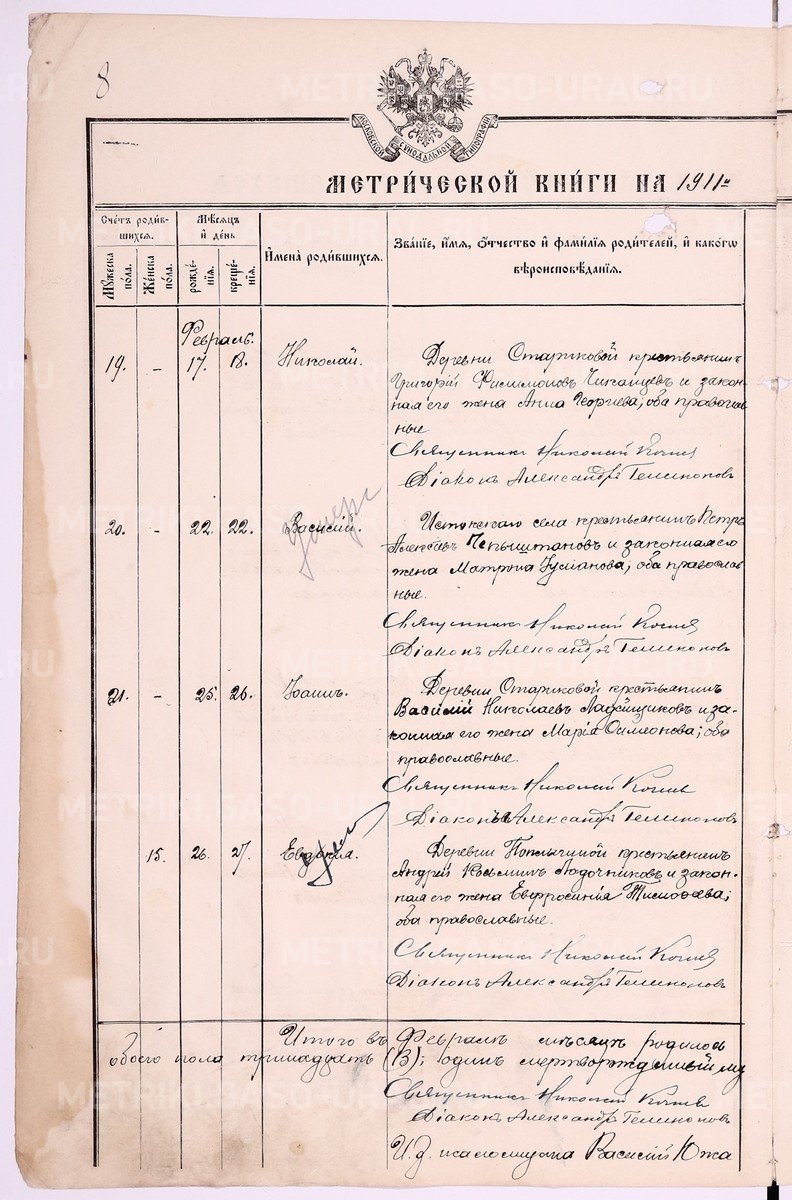 8
МОСКОВСКОЙ СѴНОДАЛЬНОЙ ТИПОГРАФІИ
МЕТРИЧЕСКОЙ КНИГИ НА 1911
Счетъ родив-
шихся.
Мужеска пола.
Женска пола.
Мѣсяцъ и день
рожде-
нія.
креще-
нія.
Имена родившихся.
Званіе, имя, отчество и фамилія родителей, и какогѡ
вѣроисповѣданія.
Февраль.
19. - 17. 18. Николай. Деревни Стариковой крестьянинъ
Григорій Филимоновъ и закон-
ная его жена Анна Георгіева, оба православ
ные
Священникъ Николай
Діаконъ Александръ
20. - 22. 22. Василій. Истокскаго села крестьянинъ Петръ
Алексѣевъ и законная его
жена Матрона; оба православ
ные.
Священникъ Николай
Діаконъ Александръ
умеръ
21. - 25. 26. Іоаннъ. Деревни Стариковой крестьянинъ
Василій Николаевъ и за-
конная его жена Марія Симеонова; оба
православные.
Священникъ Николай
Діаконъ Александръ
15. 26. 27. Евдокія. Деревни крестьянинъ
Андрей Козьминъ Лодочниковъ и закон-
ная его жена Евфросинія Тимофеева;
оба православные.
Священникъ Николай
Діаконъ Александръ
Итого въ Февралѣ мѣсяцѣ родилось
обоего пола тринадцать (13); одинъ мертворожденный
Священникъ Николай
Діаконъ Александръ
И. д. псаломщика Василій Южа